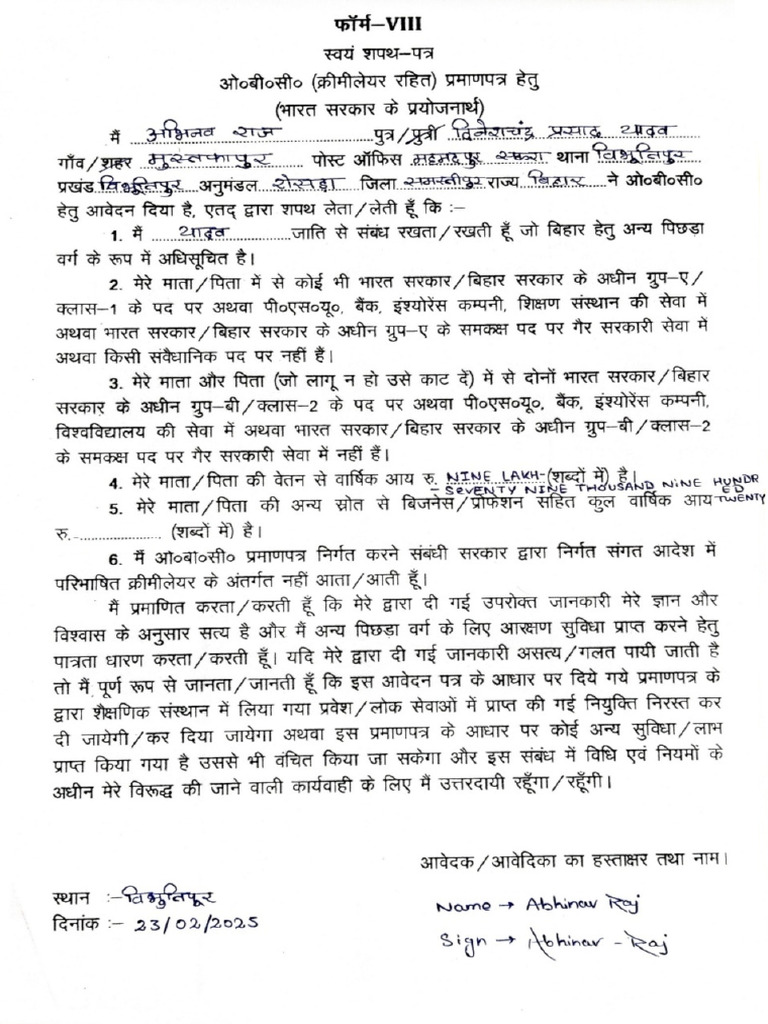 फॉर्म–VIII
स्वयं शपथ–पत्र
ओ०बी०सी० (क्रीमीलेयर रहित) प्रमाणपत्र हेतु
(भारत सरकार के प्रयोजनार्थ)
मैं अभिनव राज पुत्र/पुत्री दिनेशचंद्र प्रसाद यादव
गाँव/शहर मुस्तफापुर पोस्ट ऑफिस महमदपुर सकरा थाना विभूतिपुर
प्रखंड विभूतिपुर अनुमंडल रोसड़ा जिला समस्तीपुर राज्य बिहार ने ओ०बी०सी०
हेतु आवेदन दिया है, एतद् द्वारा शपथ लेता/लेती हूँ कि :–
1. मैं यादव जाति से संबंध रखता/रखती हूँ जो बिहार हेतु अन्य पिछड़ा
वर्ग के रूप में अधिसूचित है।
2. मेरे माता/पिता में से कोई भी भारत सरकार/बिहार सरकार के अधीन ग्रुप–ए/
क्लास–1 के पद पर अथवा पी०एस०यू०, बैंक, इंश्योरेंस कम्पनी, शिक्षण संस्थान की सेवा में
अथवा भारत सरकार/बिहार सरकार के अधीन ग्रुप–ए के समकक्ष पद पर गैर सरकारी सेवा में
अथवा किसी संवैधानिक पद पर नहीं हैं।
3. मेरे माता और पिता (जो लागू न हो उसे काट दें) में से दोनों भारत सरकार/बिहार
सरकार के अधीन ग्रुप–बी/क्लास–2 के पद पर अथवा पी०एस०यू०, बैंक, इंश्योरेंस कम्पनी,
विश्वविद्यालय की सेवा में अथवा भारत सरकार/बिहार सरकार के अधीन ग्रुप–बी/क्लास–2
के समकक्ष पद पर गैर सरकारी सेवा में नहीं हैं।
4. मेरे माता/पिता की वेतन से वार्षिक आय रु. NINE LAKH-(शब्दों में) है।
- SEVENTY NINE THOUSAND NINE HUNDR
ED
5. मेरे माता/पिता की अन्य स्रोत से बिजनेस/प्रोफेशन सहित कुल वार्षिक आय TWENTY
रु.-.................... (शब्दों में) है।
6. मैं ओ०बी०सी० प्रमाणपत्र निर्गत करने संबंधी सरकार द्वारा निर्गत संगत आदेश में
परिभाषित क्रीमीलेयर के अंतर्गत नहीं आता/आती हूँ।
मैं प्रमाणित करता/करती हूँ कि मेरे द्वारा दी गई उपरोक्त जानकारी मेरे ज्ञान और
विश्वास के अनुसार सत्य है और मैं अन्य पिछड़ा वर्ग के लिए आरक्षण सुविधा प्राप्त करने हेतु
पात्रता धारण करता/करती हूँ। यदि मेरे द्वारा दी गई जानकारी असत्य/गलत पायी जाती है
तो मैं पूर्ण रूप से जानता/जानती हूँ कि इस आवेदन पत्र के आधार पर दिये गये प्रमाणपत्र के
द्वारा शैक्षणिक संस्थान में लिया गया प्रवेश/लोक सेवाओं में प्राप्त की गई नियुक्ति निरस्त कर
दी जायेगी/कर दिया जायेगा अथवा इस प्रमाणपत्र के आधार पर कोई अन्य सुविधा/लाभ
प्राप्त किया गया है उससे भी वंचित किया जा सकेगा और इस संबंध में विधि एवं नियमों के
अधीन मेरे विरूद्ध की जाने वाली कार्यवाही के लिए मैं उत्तरदायी रहूँगा/रहूँगी।
आवेदक/आवेदिका का हस्ताक्षर तथा नाम।
स्थान :– विभूतिपूर
दिनांक :– 23/02/2025
Name → Abhinav Raj
Sign → Abhinav - Raj